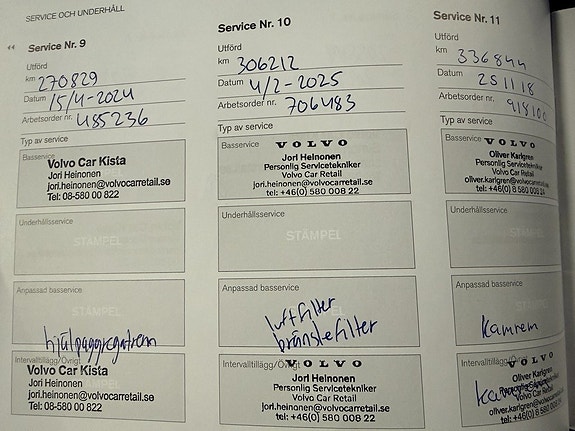 SERVICE OCH UNDERHÅLL
Service Nr. 9
Utförd
km 270829
Datum 15/4-2024
Arbetsorder nr. 485236
Typ av service
Basservice
Volvo Car Kista
Jori Heinonen
jori.heinonen@volvocarretail.se
Tel: 08-580 00 822
Underhållsservice
STÄMPEL
Anpassad basservice
hjälpaggregatrem
Intervalltillägg/Övrigt
Volvo Car Kista
Jori Heinonen
jori.heinonen@volvocarretail.se
Tel: 08-580 00 822
Service Nr. 10
Utförd
km 306212
Datum 4/2-2025
Arbetsorder nr. 706483
Typ av service
Basservice
VOLVO
Jori Heinonen
Personlig Servicetekniker
Volvo Car Retail
jori.heinonen@volvocarretail.se
tel: +46(0) 580 00 8 22
Underhållsservice
STÄMPEL
Anpassad basservice
luftfilter
bränslefilter
Intervalltillägg/Övrigt
VOLVO
Jori Heinonen
Personlig Servicetekniker
Volvo Car Retail
jori.heinonen@volvocarretail.se
tel: +46(0) 580 00 8 22
Service Nr. 11
Utförd
km 336844
Datum 251118
Arbetsorder nr. 918100
Typ av service
Basservice
VOLVO
Oliver Karlgren
Personlig Servicetekniker
Volvo Car Retail
oliver.karlgren@volvocarretail.se
tel: +46(0) 8 580 008 24
Underhållsservice
STÄMPEL
Anpassad basservice
Kamrem
Intervalltillägg/Övrigt
VOLVO
Oliver Karlgren
Personlig Servicetekniker
Volvo Car Retail
oliver.karlgren@volvocarretail.se
tel: +46(0) 8 580 008 24